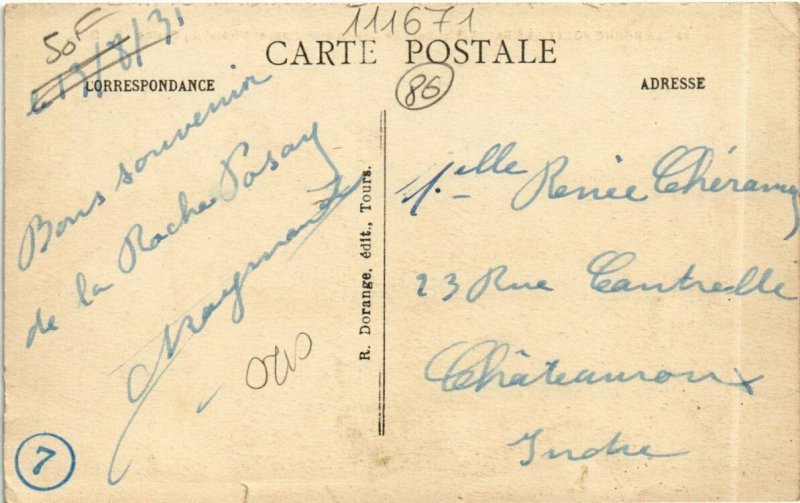 111671
50F
CARTE POSTALE
le 13/8/31
CORRESPONDANCE
86
ADRESSE
Bons souvenir
de la Roche Posay
Raymonde
R. Dorange, édit., Tours.
Melle Renée Chéramy
23 Rue Cantrelle
Châteauroux
Indre
7